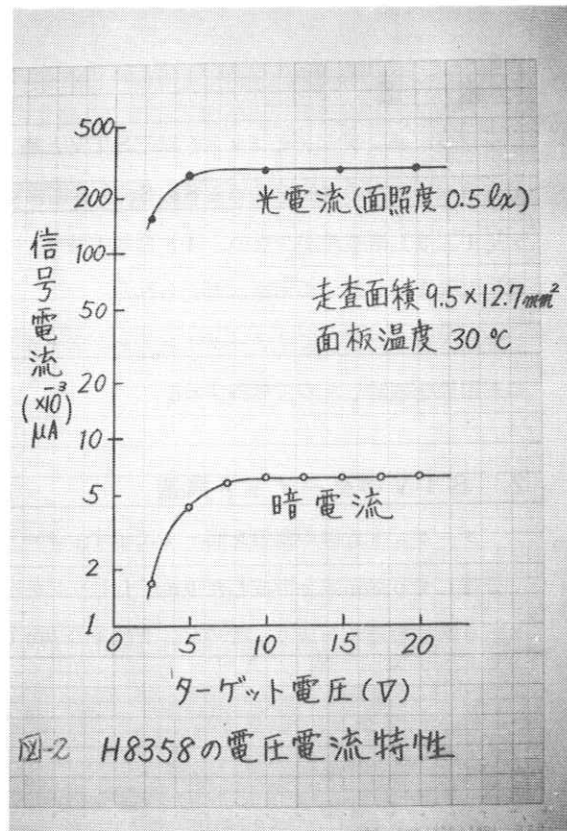 500
200
100
50
20
10
5
2
1
0
5
10
15
20
信号電流
(×10⁻³)
μA
光電流(面照度 0.5 lx)
走査面積 9.5×12.7mm²
面板温度 30℃
暗電流
ターゲット電圧(V)
図-2 H8358の電圧電流特性